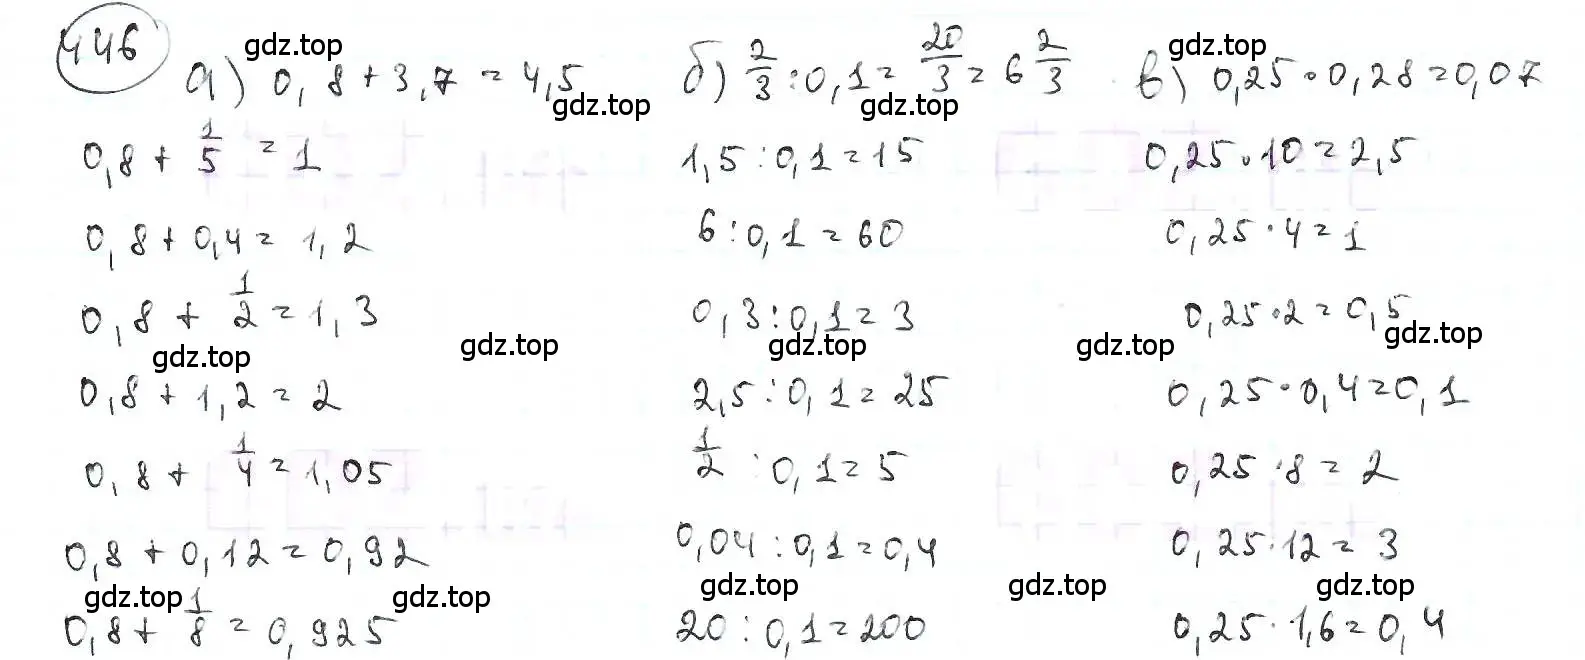 446
а) 0,8 + 3,7 = 4,5
0,8 + 1/5 = 1
0,8 + 0,4 = 1,2
0,8 + 1/2 = 1,3
0,8 + 1,2 = 2
0,8 + 1/4 = 1,05
0,8 + 0,12 = 0,92
0,8 + 1/8 = 0,925
б) 2/3 : 0,1 = 20/3 = 6 2/3
1,5 : 0,1 = 15
6 : 0,1 = 60
0,3 : 0,1 = 3
2,5 : 0,1 = 25
1/2 : 0,1 = 5
0,04 : 0,1 = 0,4
20 : 0,1 = 200
в) 0,25 · 0,28 = 0,07
0,25 · 10 = 2,5
0,25 · 4 = 1
0,25 · 2 = 0,5
0,25 · 0,4 = 0,1
0,25 · 8 = 2
0,25 · 12 = 3
0,25 · 1,6 = 0,4
gdz.top
gdz.top
gdz.top
gdz.top
gdz.top
gdz.top
gdz.top
gdz.top
gdz.top
gdz.top
gdz.top
gdz.top
gdz.top
gdz.top